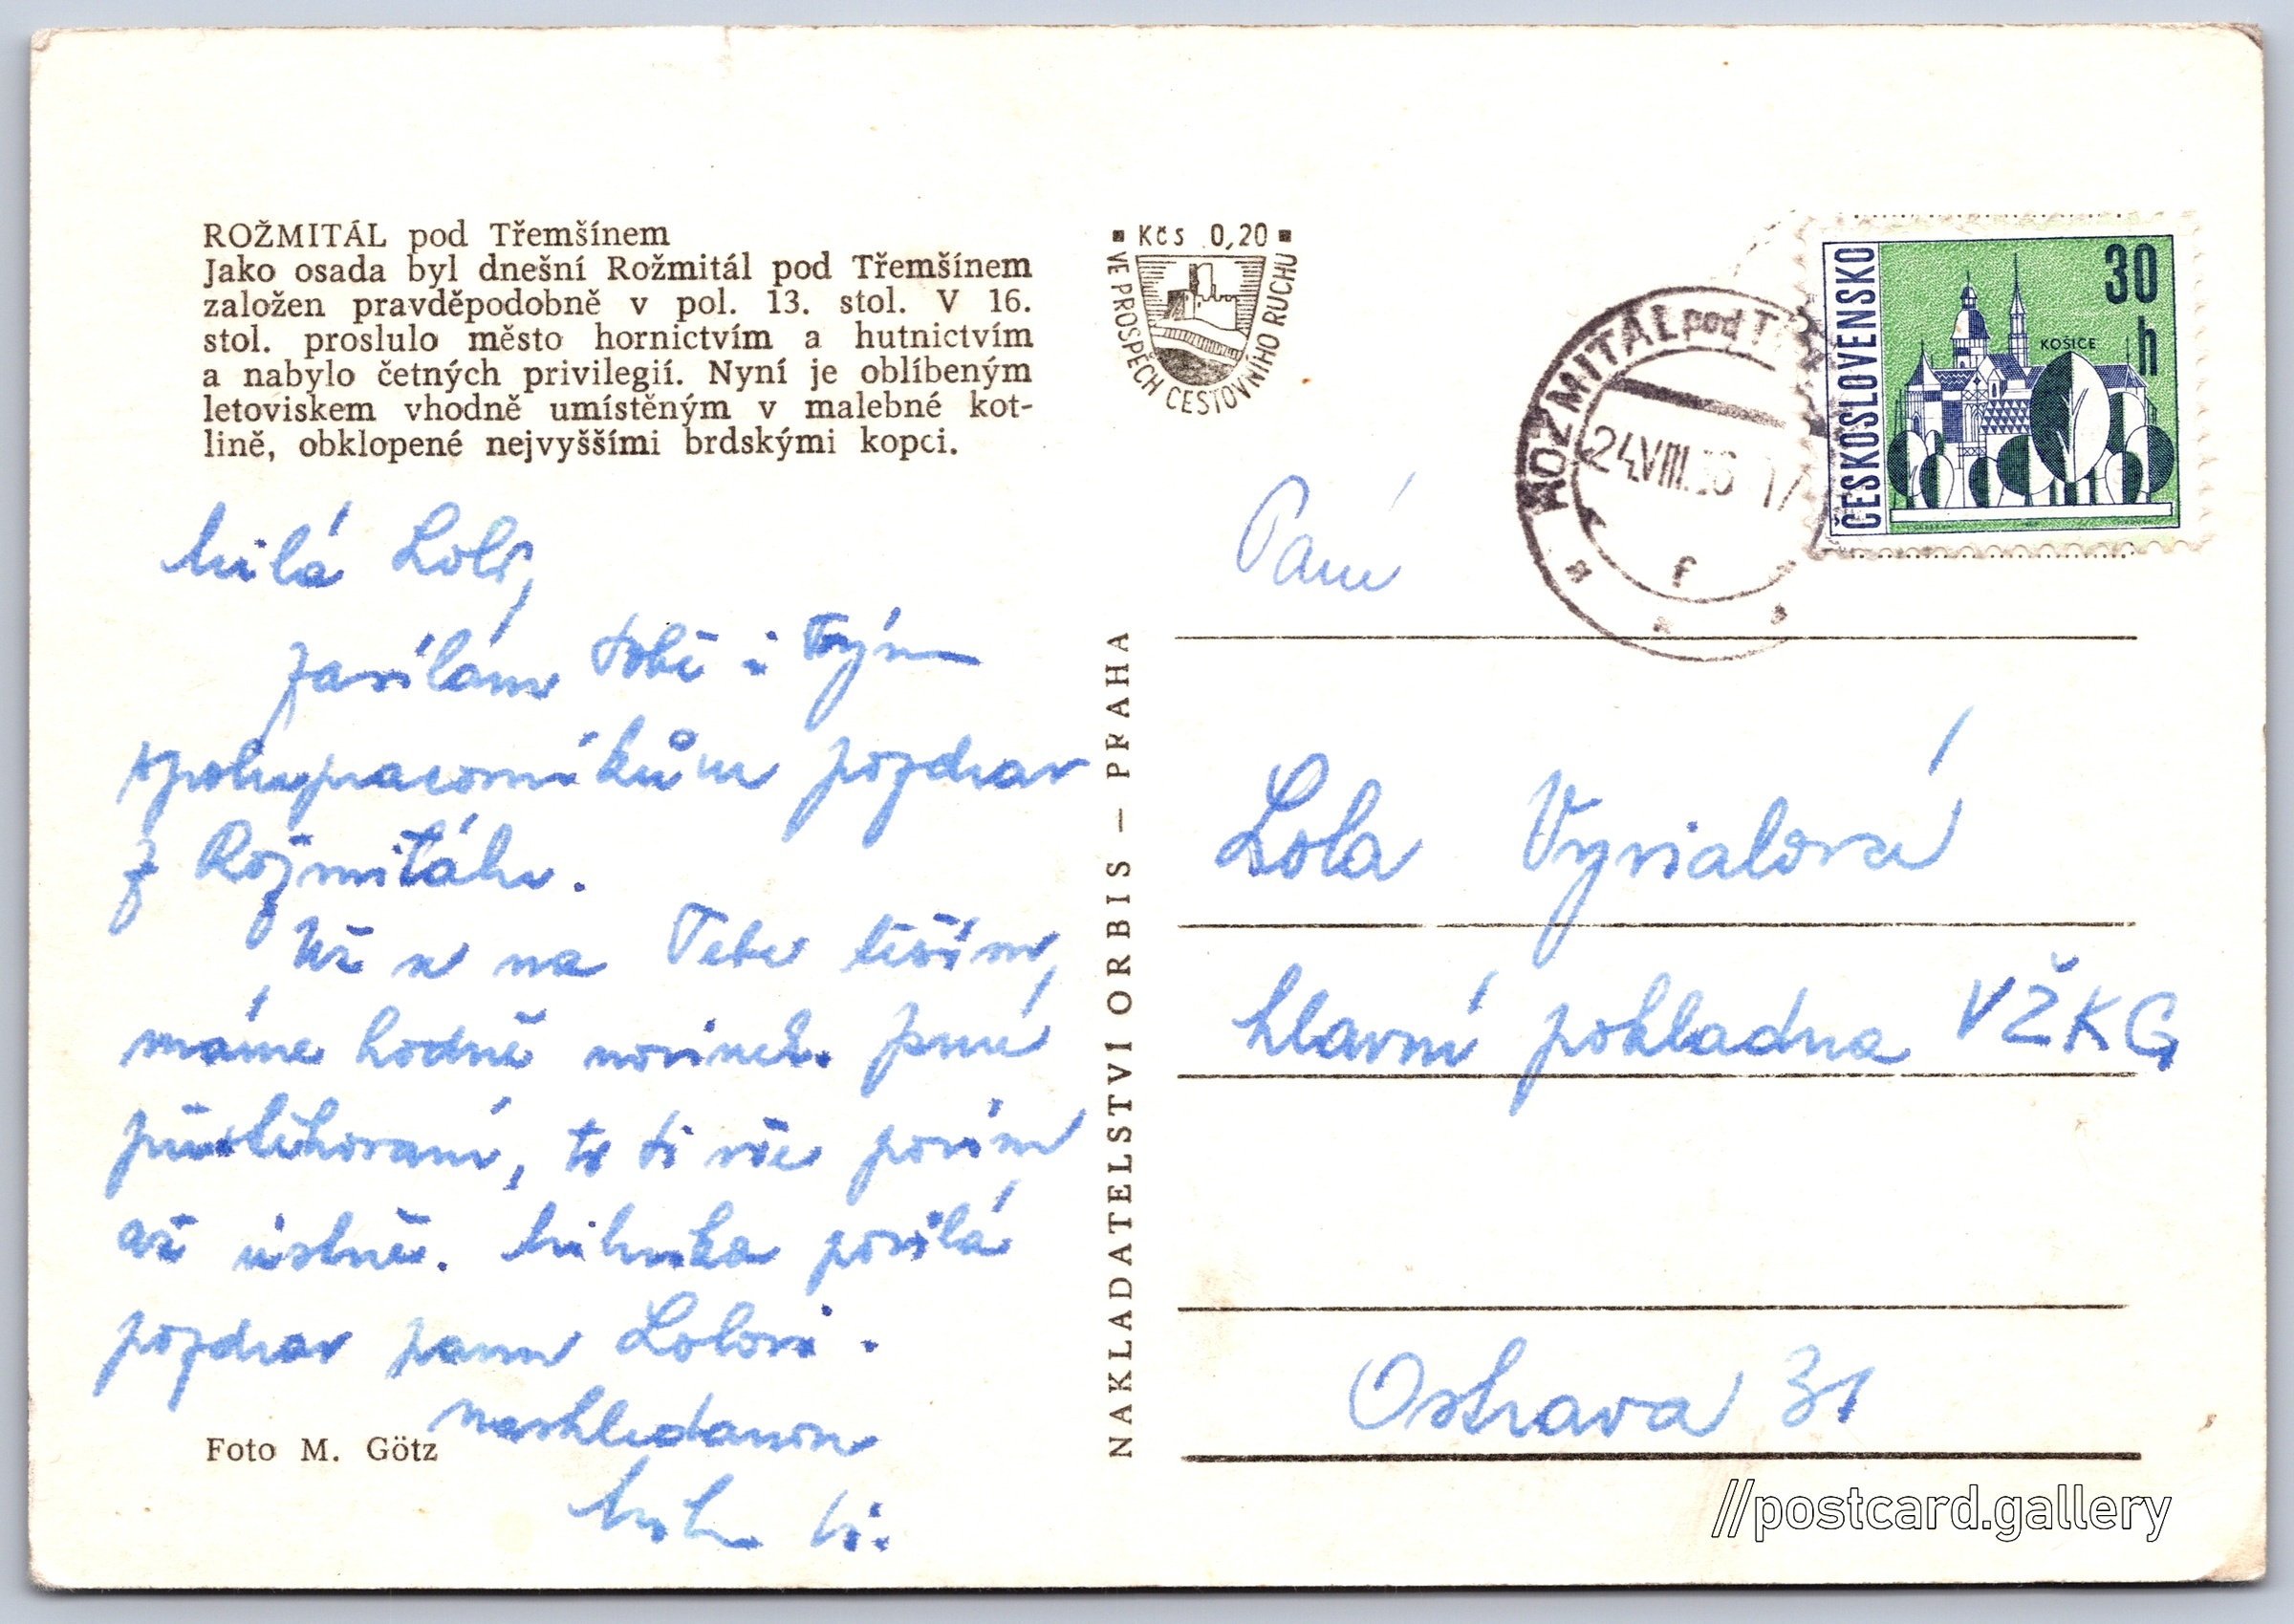 ROŽMITÁL pod Třemšínem
Jako osada byl dnešní Rožmitál pod Třemšínem
založen pravděpodobně v pol. 13. stol. V 16.
stol. proslulo město hornictvím a hutnictvím
a nabylo četných privilegií. Nyní je oblíbeným
letoviskem vhodně umístěným v malebné kot-
lině, obklopené nejvyššími brdskými kopci.
Milá Lolo,
zasílám tobě i Tvým
spolupracovníkům pozdrav
z Rožmitálu.
Už se na Tebe těším,
máme hodně novinek. Jsme
přestěhovaní, to ti vše povím
až ústně. Miluška posílá
pozdrav panu Lolovi.
Nashledanou
Foto M. Götz
NAKLADATELSTVÍ ORBIS — PRAHA
Kčs 0,20
VE PROSPĚCH CESTOVNÍHO RUCHU
ROŽMITÁL pod
24.VIII. 17
f
ČESKOSLOVENSKO
30
h
KOŠICE
Paní
Lola Vyvialová
hlavní pokladna VŽKG
Ostrava 31
//postcard.gallery